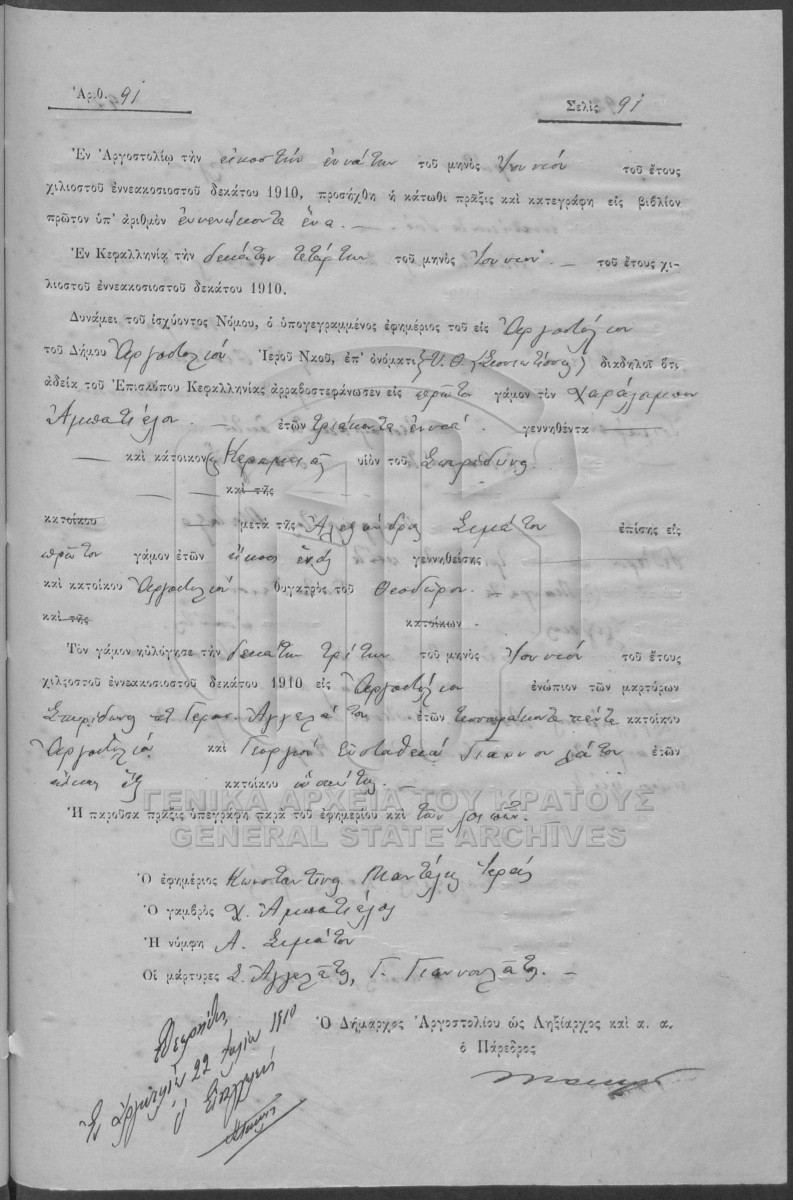 Ἀριθ. 91
Σελὶς 91
Ἐν Ἀργοστολίῳ τὴν εἰκοστήν ἐννάτην τοῦ μηνὸς Ἰουνίου τοῦ ἔτους
χιλιοστοῦ ἐννεακοσιοστοῦ δεκάτου 1910, προσήχθη ἡ κάτωθι πρᾶξις καὶ κατεγράφη εἰς βιβλίον
πρῶτον ὑπ' ἀριθμὸν ἐννενήκοντα ἕνα. —
Ἐν Κεφαλληνίᾳ τὴν δεκάτην τετάρτην τοῦ μηνὸς Ἰουνίου. — τοῦ ἔτους χι-
λιοστοῦ ἐννεακοσιοστοῦ δεκάτου 1910.
Δυνάμει τοῦ ἰσχύοντος Νόμου, ὁ ὑπογεγραμμένος ἐφημέριος τοῦ εἰς Ἀργοστόλιον
τοῦ Δήμου Ἀργοστολίου Ἱεροῦ Ναοῦ, ἐπ' ὀνόματι Υ. Θ. διαδηλοῖ ὅτι
ἀδείᾳ τοῦ Ἐπισκόπου Κεφαλληνίας ἀρραβοστεφάνωσεν εἰς πρῶτον γάμον τὸν Χαράλαμπον
Ἀμπατιέλον. — ἐτῶν τριάκοντα ἐννέα. γεννηθέντα —
— καὶ κάτοικον Κεραμειάς υἱὸν τοῦ Σπυρίδωνος
— — καὶ τῆς
κατοίκου — μετὰ τῆς Ἀλεξάνδρας Σιμάτου ἐπίσης εἰς
πρῶτον γάμον ἐτῶν εἴκοσι ἑνός γεννηθείσης —
καὶ κατοίκου Ἀργοστολίου θυγατρὸς τοῦ Θεοδώρου. —
καὶ τῆς κατοίκων
Τὸν γάμον ηὐλόγησε τὴν δεκάτην τρίτην τοῦ μηνὸς Ἰουνίου τοῦ ἔτους
χιλιοστοῦ ἐννεακοσιοστοῦ δεκάτου 1910 εἰς Ἀργοστόλιον ἐνώπιον τῶν μαρτύρων
Σπυρίδωνος Γερασ. Ἀγγελάτου ἐτῶν τεσσαράκοντα πέντε κατοίκου
Ἀργοστολίου καὶ Γεωργίου Εὐσταθίου Γιαννουλάτου ἐτῶν
εἴκοσι ἕξ κατοίκου ὡσαύτως. —
Ἡ παροῦσα πρᾶξις ὑπεγράφη παρὰ τοῦ ἐφημερίου καὶ τῶν λοιπῶν. —
ΓΕΝΙΚΑ ΑΡΧΕΙΑ ΤΟΥ ΚΡΑΤΟΥΣ
GENERAL STATE ARCHIVES
Ὁ ἐφημέριος Κωνσταντῖνος Μαντάλας Ἱερεύς
Ὁ γαμβρὸς Χ. Ἀμπατιέλος
Ἡ νύμφη Α. Σιμάτου
Οἱ μάρτυρες Σ. Ἀγγελάτος, Γ. Γιαννουλάτος. —
Ὁ Δήμαρχος Ἀργοστολίου ὡς Ληξίαρχος καὶ α. α.
ὁ Πάρεδρος
Ἐθεωρήθη
Ἐν Ἀργοστολίῳ 22 Ἰουλίου 1910
ὁ Εἰσαγγελεύς